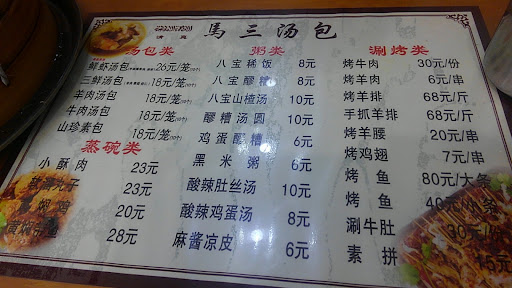 清真
馬三汤包
汤包类
鲜虾汤包 26元/笼
三鲜汤包 18元/笼
羊肉汤包 18元/笼
牛肉汤包 18元/笼
山珍素包 18元/笼
蒸碗类
小酥肉 23元
丸子 23元
鸡 20元
28元
粥类
八宝稀饭 8元
八宝醪糟 8元
八宝山楂汤 10元
醪糟汤圆 10元
鸡蛋醪糟 6元
黑米粥 6元
酸辣肚丝汤 10元
酸辣鸡蛋汤 8元
麻酱凉皮 6元
涮烤类
烤牛肉 30元/份
烤羊肉 6元/串
烤羊排 68元/斤
手抓羊排 68元/斤
烤羊腰 20元/串
烤鸡翅 7元/串
烤鱼 80元/大条
烤鱼 元/小条
涮牛肚 30元/份
素拼 15元